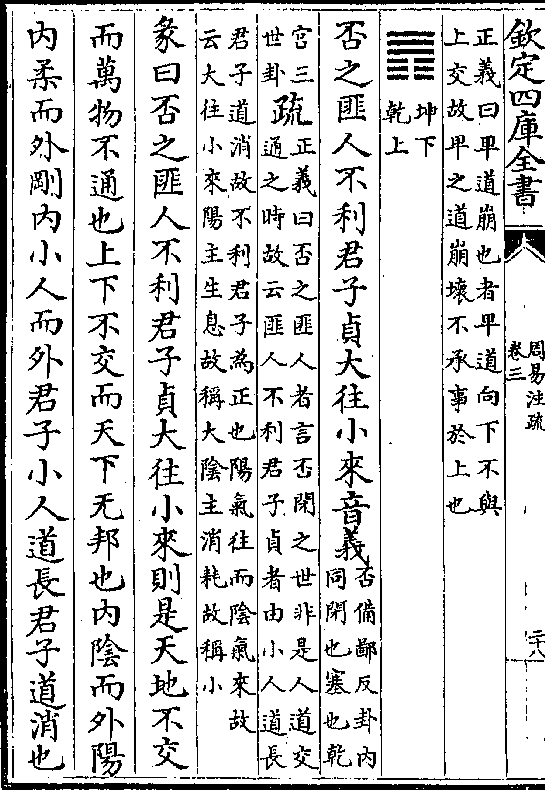 欽定四庫全書
周易注疏
卷三
二十八
正義曰卑道崩也者卑道向下不與
上交故卑之道崩壞不承事於上也
坤下
乾上
否之匪人不利君子貞大往小來音義
否備鄙反卦內
同閉也塞也乾
宮三
世卦
疏
正義曰否之匪人者言否閉之世非是人道交
通之時故云匪人不利君子貞者由小人道長
君子道消故不利君子為正也陽氣往而陰氣來故
云大往小來陽主生息故稱大陰主消耗故稱小
彖曰否之匪人不利君子貞大往小來則是天地不交
而萬物不通也上下不交而天下无邦也內陰而外陽
內柔而外剛內小人而外君子小人道長君子道消也